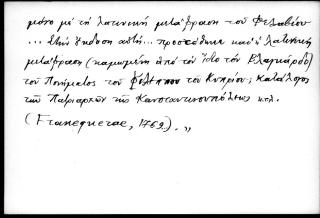 μόνο μὲ τὴ λατινικὴ μετάφραση τοῦ Φελαβίου
... Στὴν ἔκδοση αὐτή... προστέθηκε καὶ ἡ λατινικὴ
μετάφραση (καμωμένη ἀπὸ τὸν ἴδιο τὸν Βλαγκάρδο)
τοῦ Ποιήματος τοῦ Φιλίππου τοῦ Κυπρίου; Κατάλογος
τῶν Πατριαρχῶν τῆς Κωνσταντινουπόλεως κτλ.
(Franequerae, 1769). „